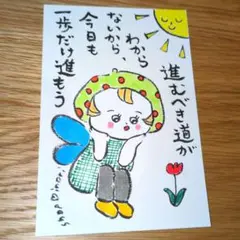 進むべき道が
わから
ないから、
今日も
一歩だけ進もう